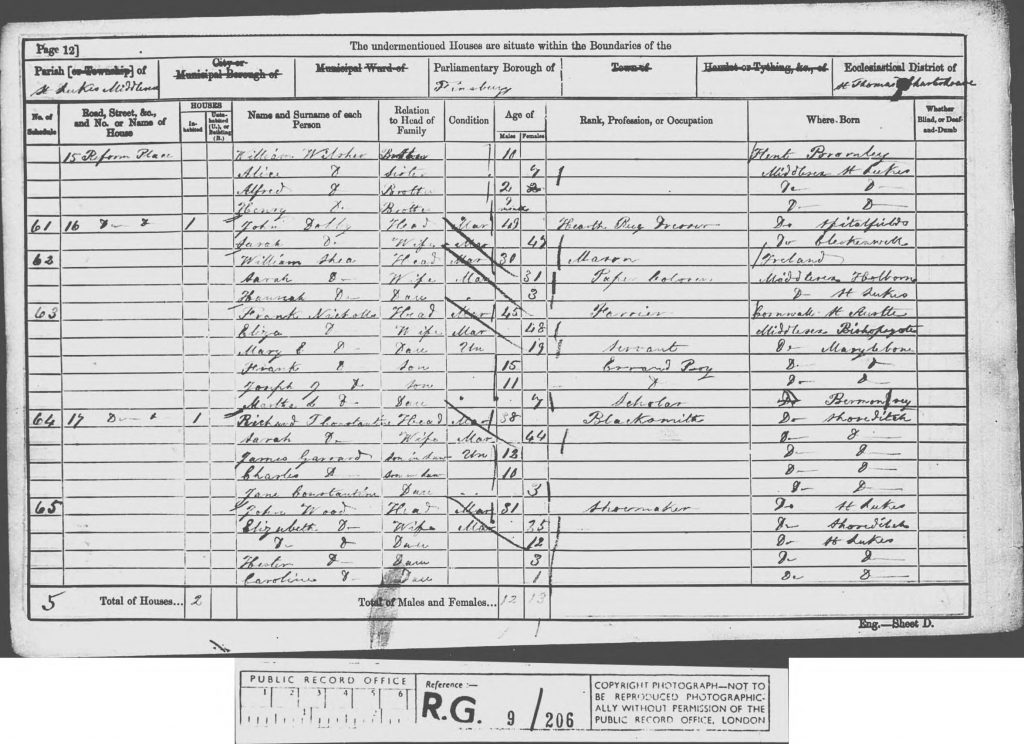 Page 12]
The undermentioned Houses are situate within the Boundaries of the
Parish [or Township] of
City or Municipal Borough of
Municipal Ward of
Parliamentary Borough of
Town of
Hamlet or Tything, &c., of
Ecclesiastical District of
St Lukes Middlesex
Finsbury
St Thomas Charterhouse
No. of Schedule
Road, Street, &c., and No. or Name of House
HOUSES
Inhabited
Uninhabited (U.), or Building (B.)
Name and Surname of each Person
Relation to Head of Family
Condition
Age of
Males
Females
Rank, Profession, or Occupation
Where Born
Whether Blind, or Deaf-and-Dumb
15 Reform Place William Wilsher Brother 10 Kent
Alice D Sister 7 Middlesex St Lukes
Alfred D Brother 2 Do D
Henry D. Brother 9 Do D
61 16 D D 1 John Head Mar 49 Hearth Rug Do Spitalfields
Sarah D. Wife Mar 47 Do Clerkenwell
62 William Shea Head Mar 30 Mason Ireland
Sarah D Wife Mar 31 Middlesex Holborn
Hannah D Daur 3 D St Lukes
63 Frank Nicholls Head Mar 45 Farrier Cornwall St
Eliza D Wife Mar 48 Middlesex Bishopsgate
Mary E D Daur Un 19 Servant Do Marylebone
Frank D Son 15 Errand Boy D D
Joseph J D. Son 11 D Do D
Martha D. Daur 7 Scholar Do Bermondsey
64 17 D 1 Richard Head Mar 38 Blacksmith Do Shoreditch
Sarah D Wife Mar 44 D D
James Garrard Son in law Un 12 D D
Charles D Son in law 10 D D
Jane Constantine Daur 3 D D
65 John Wood Head Mar 31 Shoemaker Do St Lukes
Elizabeth D Wife Mar 35 D Shoreditch
D D Daur 12 Do St Lukes
Hester D Daur 3 D D
Caroline D Daur 1 Do D
5 Total of Houses... 2 Total of Males and Females... 12 13
Eng.—Sheet D.
PUBLIC RECORD OFFICE
1 2 3 4 5 6
Reference :—
R.G. 9/206
COPYRIGHT PHOTOGRAPH—NOT TO
BE REPRODUCED PHOTOGRAPHIC-
ALLY WITHOUT PERMISSION OF THE
PUBLIC RECORD OFFICE, LONDON